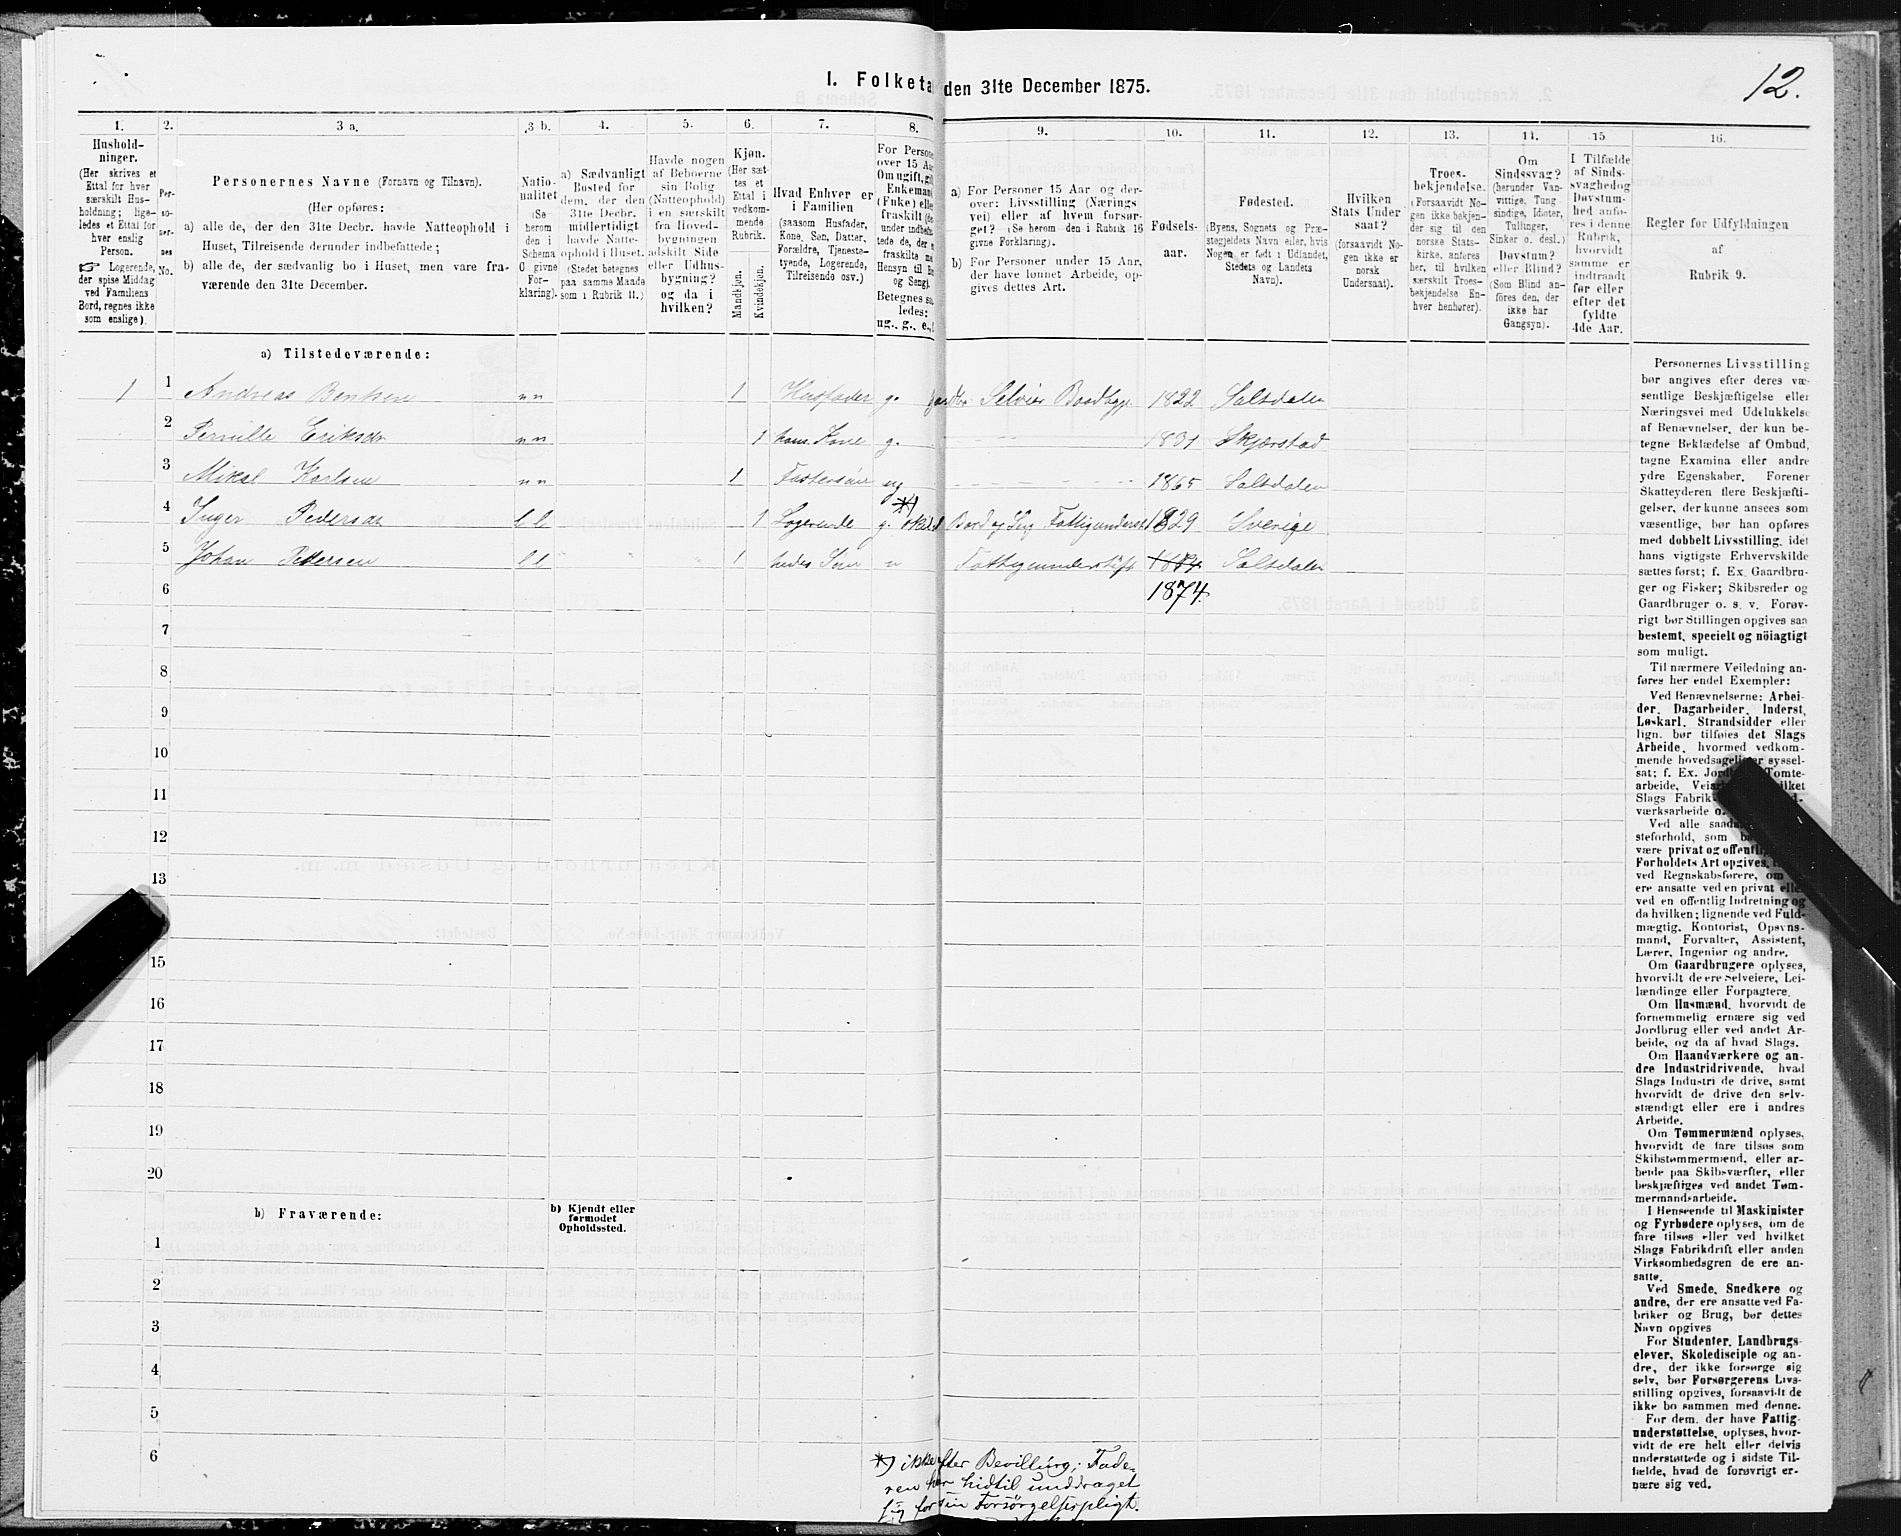 I. Folketa den 31te December 1875.
12.
1.
2.
3 a.
3 b.
4.
5.
6.
7.
8.
9.
10.
11.
12.
13.
14.
15
16.
Hushold-
ninger.
(Her skrives et
Ettal for hver
særskilt Hus-
holdning; lige-
ledes et Ettal for
hver enslig
Person.
☞ Logerende,
der spise Middag
ved Familiens
Bord, regnes ikke
som enslige).
Per-
so-
ner-
nes
No.
Personernes Navne (Fornavn og Tilnavn).
(Her opføres:
a) alle de, der den 31te Decbr. havde Natteophold i
Huset, Tilreisende derunder indbefattede;
b) alle de, der sædvanlig bo i Huset, men vare fra-
værende den 31te December.
Natio-
nalitet
(Se
herom
den i
Schema
O givne
For-
klaring).
a) Sædvanligt
Bosted for
dem, der den
31te Decbr.
midlertidigt
havde Natte-
ophold i Huset.
(Stedet betegnes
paa samme Maade
som i Rubrik 11.)
Havde nogen
af Beboerne
sin Bolig
(Natteophold)
i en særskilt
fra Hoved-
bygningen
adskilt Side
eller Udhus-
bygning?
og da i
hvilken?
Kjøn.
(Her sæt-
tes et
Ettal i
vedkom-
mende
Rubrik.
Mandkjøn.
Kvindekjøn.
Hvad Enhver er
i Familien
(saasom Husfader,
Kone, Søn, Datter,
Forældre, Tjeneste-
tyende, Logerende,
Tilreisende osv.)
For Persone
over 15 Aar
Om ugift, gif
Enkemand
(Enke) elle
fraskilt (de
under indbefat
tede de, der e
fraskilte me
Hensyn til Bo
og Seng).
Betegnes saa
ledes:
ug., g., e., f.
a) For Personer 15 Aar og der-
over: Livsstilling (Nærings
vei) eller af hvem forsør-
get? (Se herom den i Rubrik 16
givne Forklaring).
b) For Personer under 15 Aar,
der have lønnet Arbeide, op-
gives dettes Art.
Fødsels-
aar.
Fødested.
(Byens, Sognets og Præ-
stegjeldets Navn eller, hvis
Nogen er født i Udlandet,
Stedets og Landets
Navn).
Hvilken
Stats Under
saat?
(forsaavidt No-
gen ikke er
norsk
Undersaat).
Troes-
bekjendelse.
(Forsaavidt No-
gen ikke bekjen-
der sig til den
norske Stats-
kirke, anføres
her, til hvilken
særskilt Troes-
bekjendelse En-
hver henhører).
Om
Sindssvag?
(herunder Van-
vittige, Tung
sindige, Idioter,
Tullinger,
Sinker o. desl.)
Døvstum?
eller Blind?
(Som Blind an-
føres den, der
ikke har
Gangsyn).
I Tilfælde
af Sinds-
svaghed og
Døvstum-
hed anfø-
res i denne
Rubrik,
hvorvidt
samme er
indtraadt
før eller
efter det
fyldte
4de Aar.
Regler før Udfyldningen
af
Rubrik 9.
a) Tilstedeværende:
1 1 Andreas Bentsen nn 1 Husfader g. Selveier 1822 Saltdalen
2 Pernille Eriksdr nn 1 hans Kone g. 1831 Skjærstad
3 Mikal Karlsen nn 1 Fostersøn ug 1865 Saltdalen
4 Inger Pedersdr ll 1 Logerende g. *) 1829 Sverige
5 Johan Pedersen ll 1 hedes Søn Fattigunderstøft Saltdalen
6 1874.
7
8
9
10
11
12
13
15
16
17
18
19
20
b) Fraværende:
b) Kjendt eller
formodet
Opholdssted.
1
2
3
4
5
6
*) ikke efter Bevilling; Fade-
ren har hidtil unddraget
sig for sin Forsørgelsespligt.
Personernes Livsstilling
bør angives efter deres væ-
sentlige Beskjæftigelse eller
Næringsvei med Udelukkelse
af Benævnelser, der kun be-
tegne Beklædelse af Ombud,
tagne Examina eller andre
ydre Egenskaber. Forener
Skatteyderen flere Beskjæfti-
gelser, der kunne ansees som
væsentlige, bør han opføres
med dobbelt Livsstilling, idet
hans vigtigste Erhvervskilde
sættes først; f. Ex. Gaardbru-
ger og Fisker; Skibsreder og
Gaardbruger o. s. v. Forøv-
rigt bør Stillingen opgives saa
bestemt, specielt og nøiagtigt
som muligt.
Til nærmere Veiledning an-
føres her endel Exempler:
Ved Benævnelserne: Arbei-
der, Dagarbeider, Inderst,
Løskarl, Strandsidder eller
lign. bør tilføies det Slags
Arbeide, hvormed vedkom-
mende hovedsageligst syssel-
sat; f. Ex. Tomte-
arbeide,
Slags Fabrik
værksarbeide
Ved alle
steforhold, som
være privat og offentlig
Forholdets Art opgives,
ved Regnskabsførere, om
ere ansatte ved en privat eller
ved en offentlig Indretning og
da hvilken; lignende ved Fuld-
mægtig, Kontorist, Opsyns-
mand, Forvalter, Assistent,
Lærer, Ingeniør og andre.
Om Gaardbrugere oplyses,
hvorvidt de ere Selveiere, Lei-
lændinge eller Forpagtere.
Om Husmænd, hvorvidt de
fornemmelig ernære sig ved
Jordbrug eller ved andet Ar-
beide, og da af hvad Slags.
Om Haandværkere og an-
dre Industridrivende, hvad
Slags Industri de drive, samt
hvorvidt de drive den selv-
stændigt eller ere i andres
Arbeide.
Om Tømmermænd oplyses,
hvorvidt de fare tilsøs som
Skibstømmermænd, eller ar-
beide paa Skibsværfter, eller
beskjæftiges ved andet Tøm-
mermandsarbeide.
I Henseende til Maskinister
og Fyrbødere oplyses, om de
fare tilsøs eller ved hvilket
Slags Fabrikdrift eller anden
Virksomhedsgren de ere an-
satte.
Ved Smede, Snedkere og
andre, der ere ansatte ved Fa-
briker og Brug, bør dettes
Navn opgives
For Studenter, Landbrugs-
elever, Skoledisciple og an-
dre, der ikke forsørge sig
selv, bør Forsørgerens Livs-
stilling opgives, forsaavidt de
ikke bo sammen med denne.
For dem, der have Fattig-
understøttelse, oplyses, hvor-
vidt de ere helt eller delvis
understøttede og i sidste Til-
fælde, hvad de forøvrigt er-
nære sig ved.